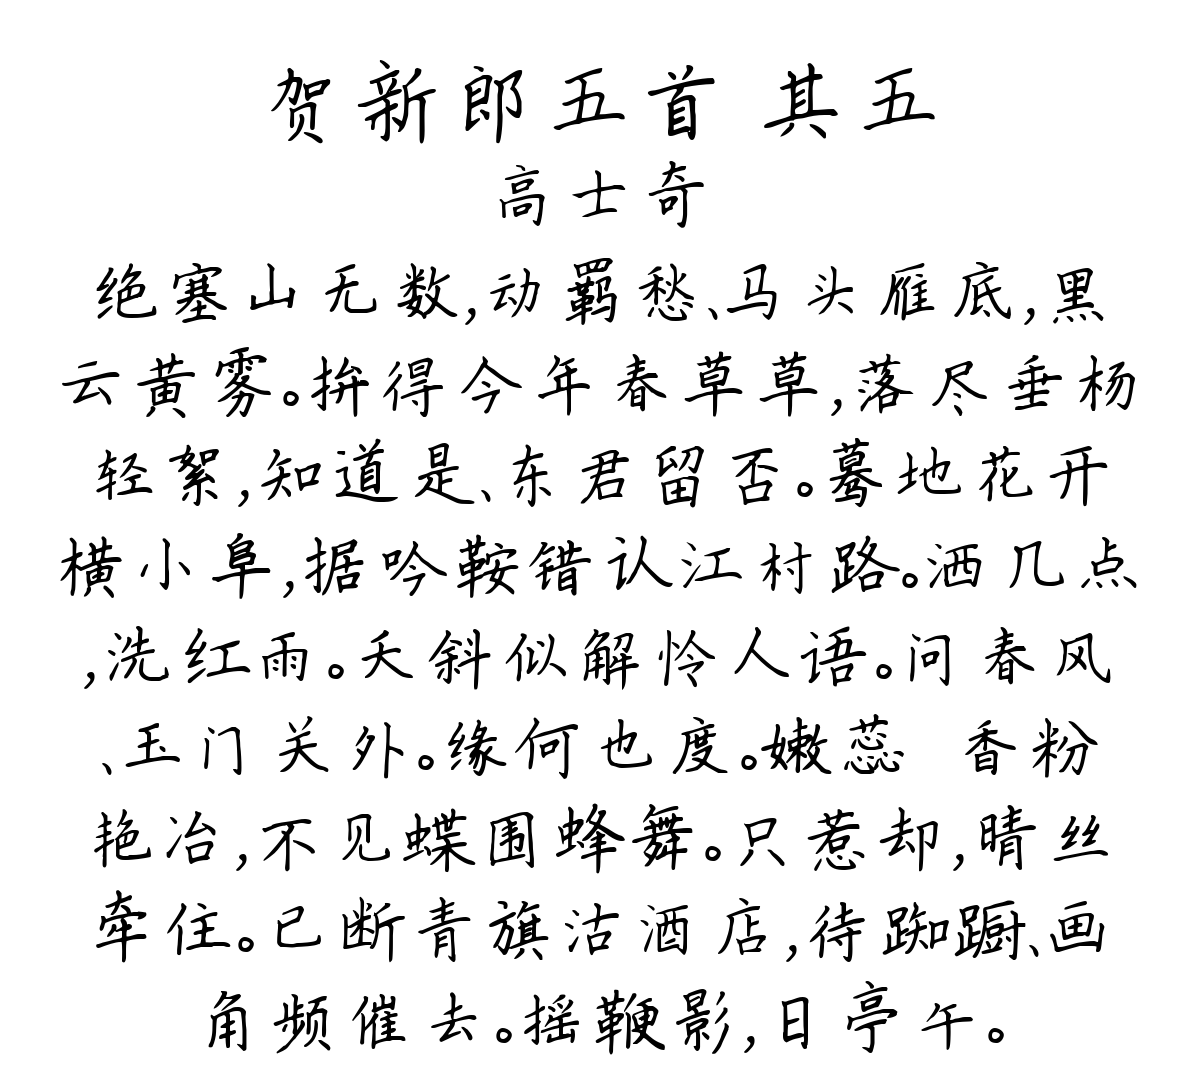 贺新郎五首 其五
高士奇
绝塞山无数,动羁愁、马头雁底,黑
云黄雾。拚得今年春草草,落尽垂杨
轻絮,知道是、东君留否。蓦地花开
横小阜,据吟鞍错认江村路。洒几点
,洗红雨。夭斜似解怜人语。问春风
、玉门关外。缘何也度。嫩蕊 香粉
艳冶,不见蝶围蜂舞。只惹却,晴丝
牵住。已断青旗沽酒店,待踟蹰、画
角频催去。摇鞭影,日亭午。